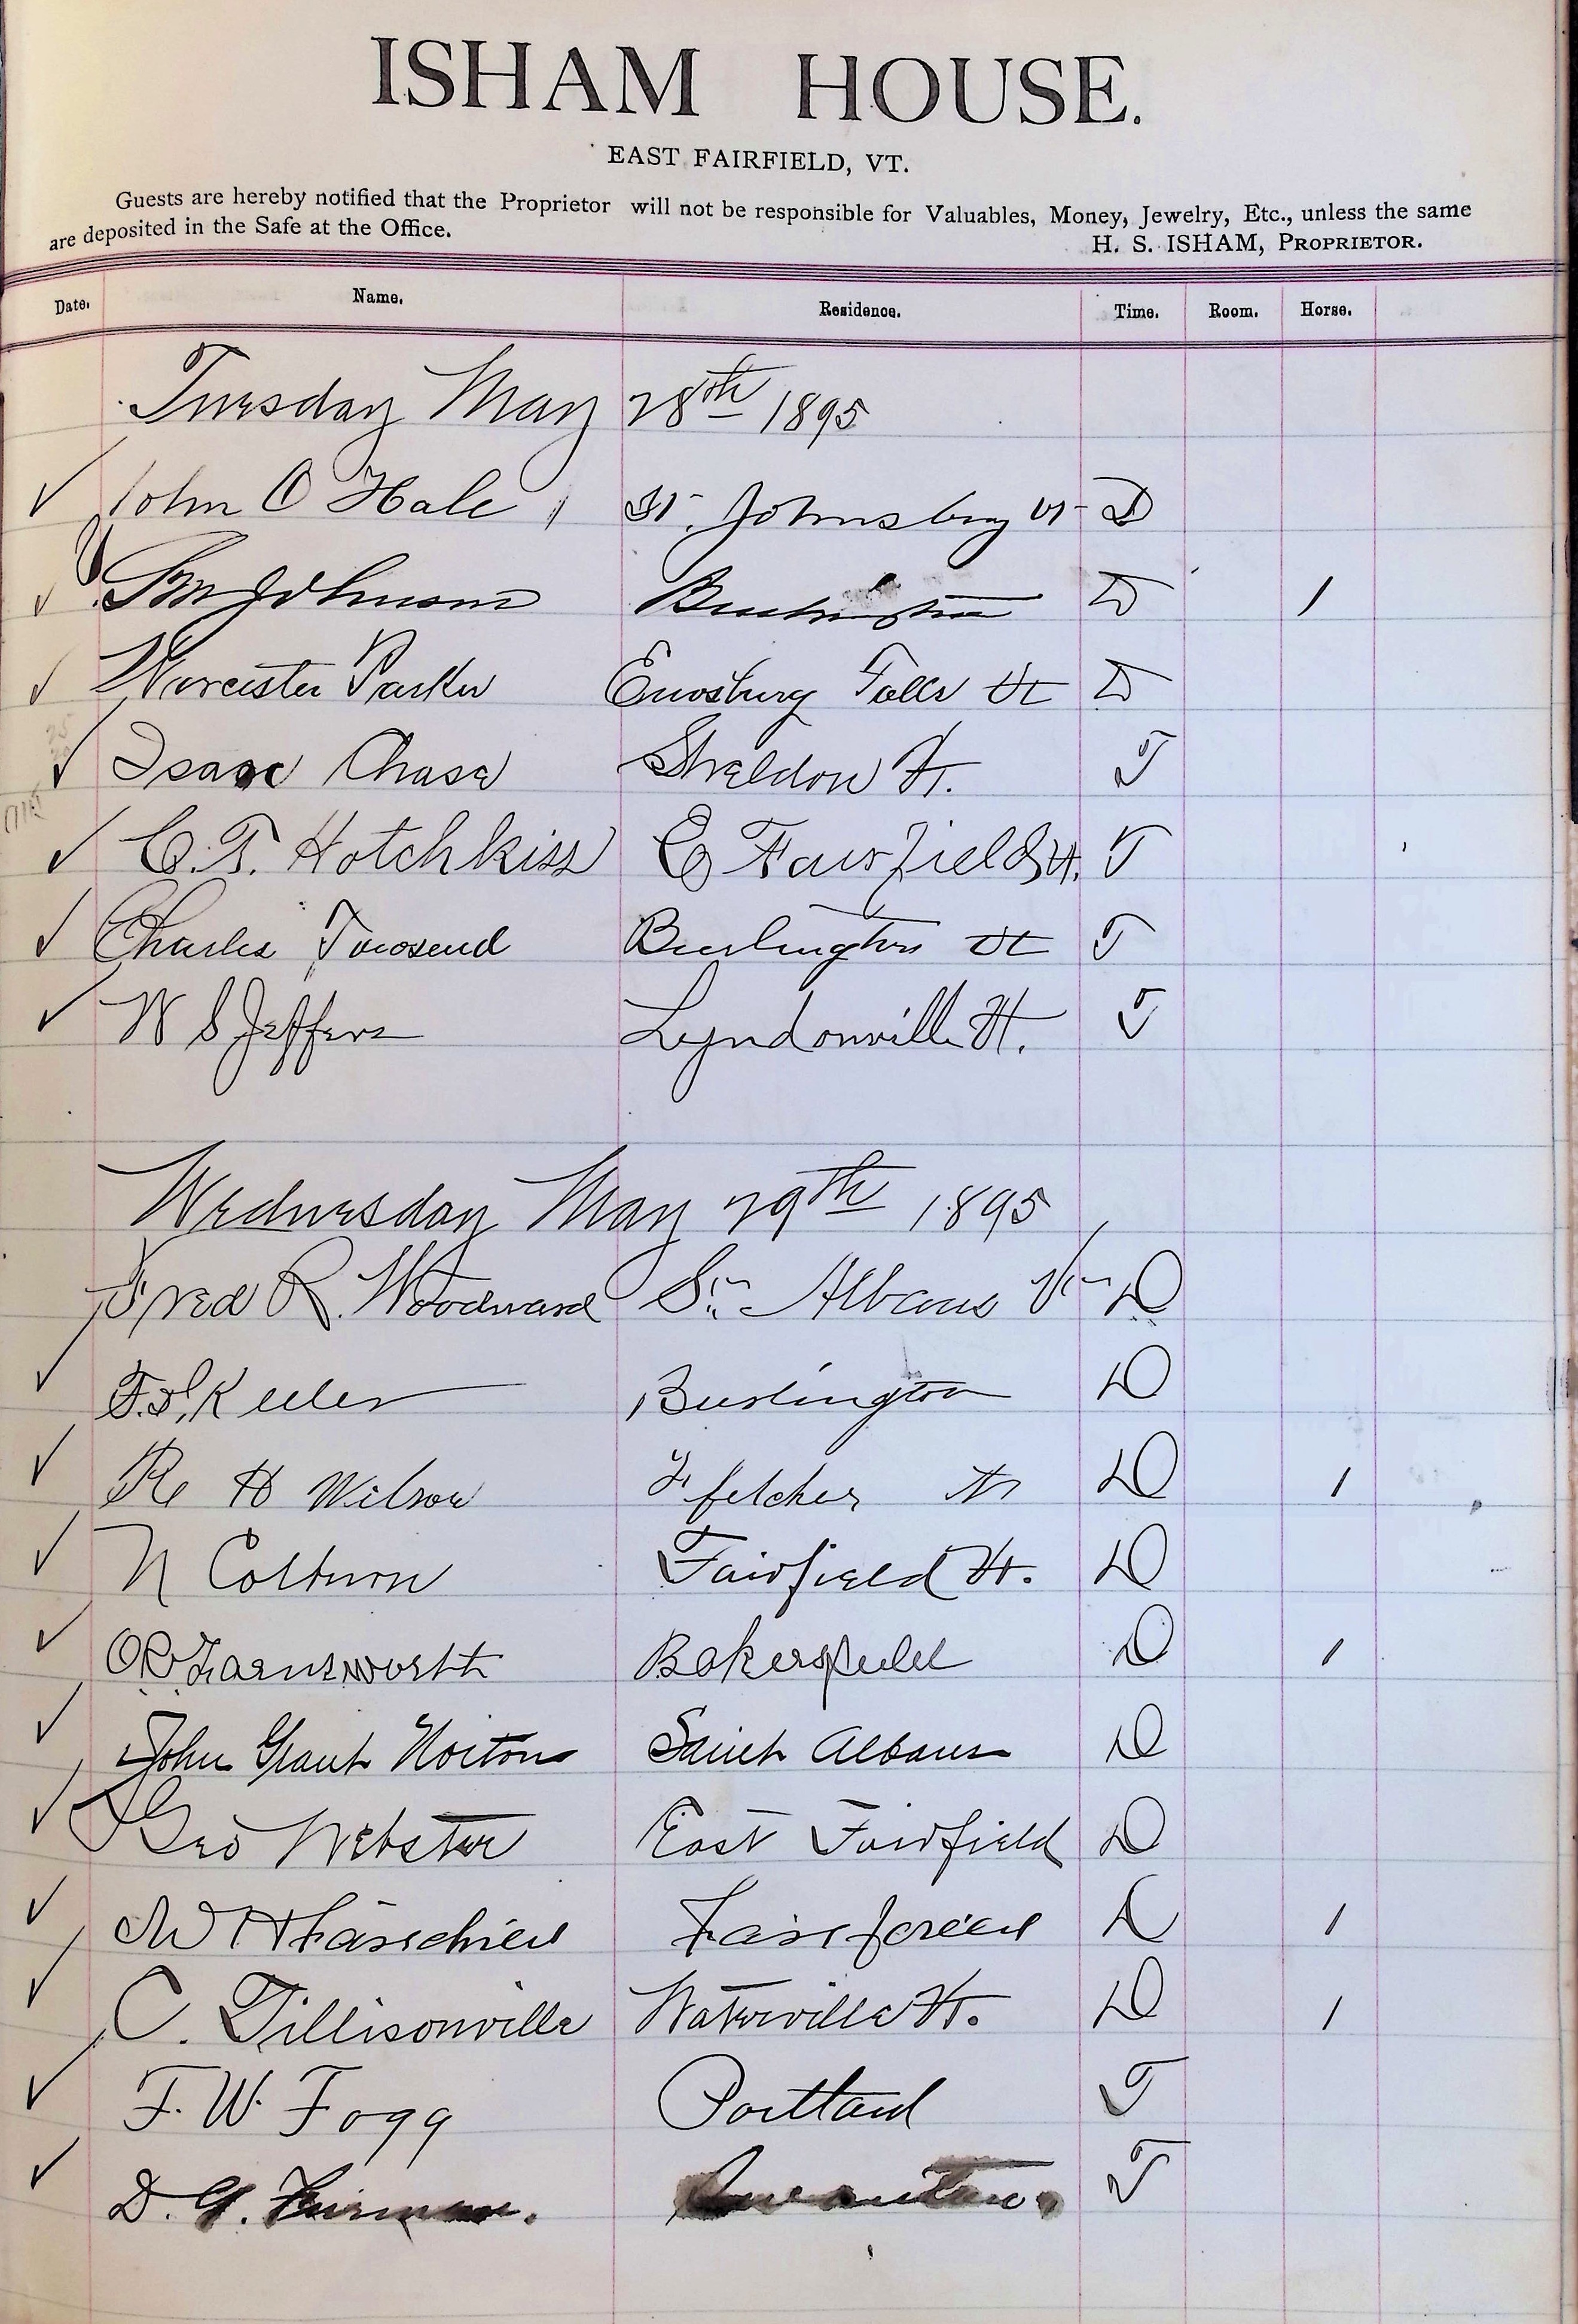 ISHAM HOUSE.
EAST FAIRFIELD, VT.
Guests are hereby notified that the Proprietor will not be responsible for Valuables, Money, Jewelry, Etc., unless the same
are deposited in the Safe at the Office.
H. S. ISHAM, PROPRIETOR.
Date. Name. Residence. Time. Room. Horse.
Tuesday May 28th 1895
John O Hale St. Johnsbury Vt D
Johnson Burlington D 1
Worcester Parker Enosburg Falls Vt D
Isaac Chase Sheldon Vt. T
C. T. Hotchkiss E Fairfield Vt. T
Charles Townsend Burlington Vt T
W S Jeffers Lyndonville Vt. T
Wednesday May 29th 1895
Fred R. Woodward St. Albans Vt D
Keeler Burlington D
R H Wilson Fletcher Vt D 1
N Colburn Fairfield Vt. D
O R Farnsworth Bakersfield D 1
John Grant Norton Saint Albans D
Geo Webster East Fairfield D
Fairfield D 1
C. Tillisonville Waterville Vt. D 1
F. W. Fogg Portland T
D. G. Furman. T